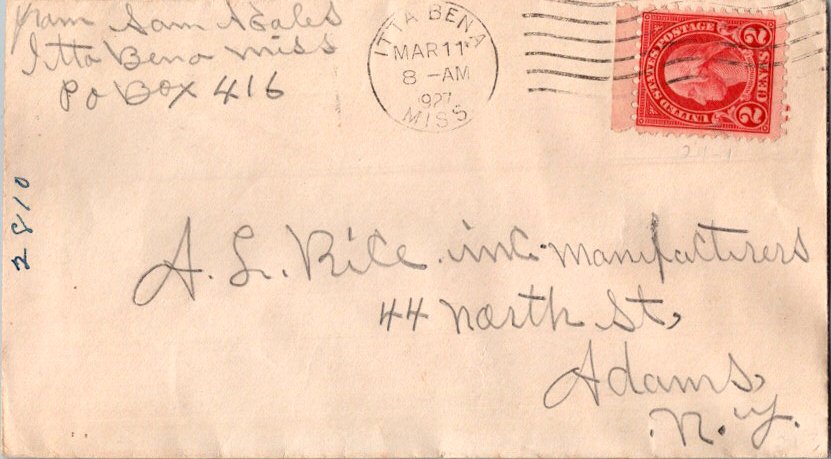 from Sam Scales
Itta Bena Miss
Po Box 416
ITTA BENA
MAR 11
8 - AM
1927
MISS
UNITED STATES POSTAGE
2 CENTS 2
2810
A. L. Rice inc. Manufacturers
44 North St,
Adams,
N. Y.